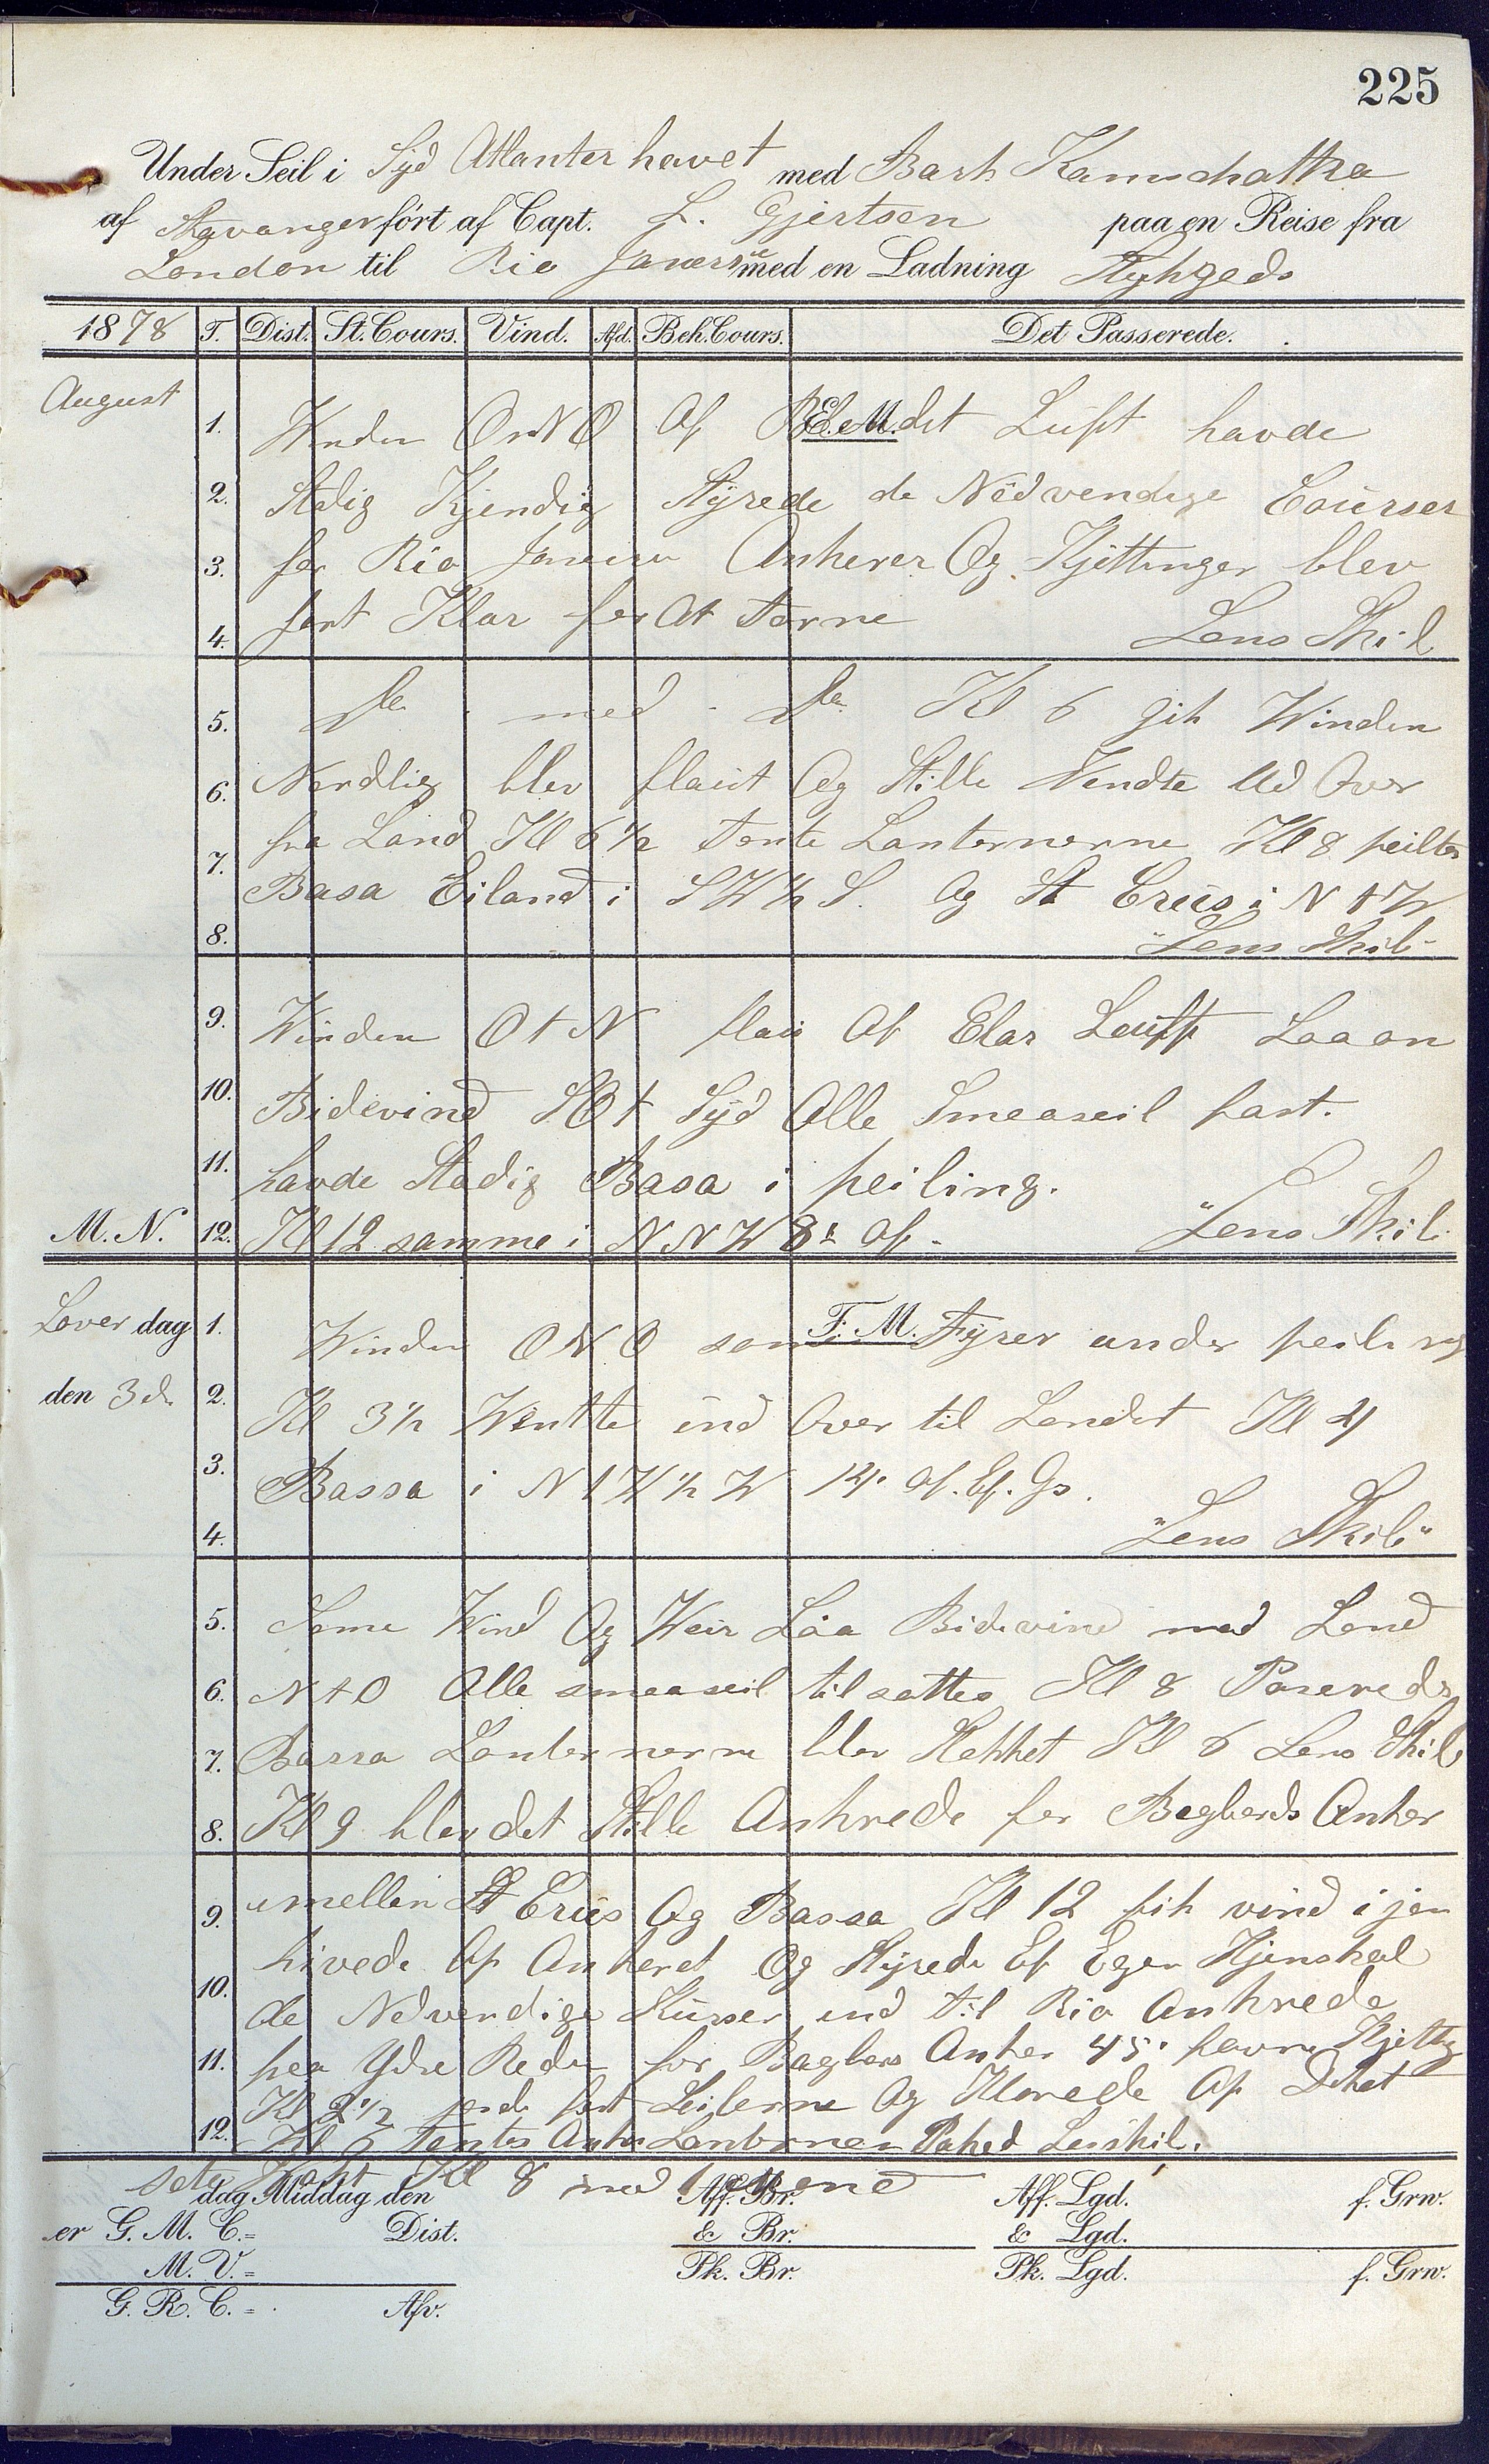 225
Under Seil i Syd Atlanter havet med Bark Kamschatka
af Stavanger fört af Capt. L. Gjertsen paa en Reise fra
London til Rio Janerie med en Ladning Stykgeds
1878 T. Dist. St. Cours. Vind. Afd. Beh. Cours. Det Passerede.
August
E. M.
1. Winden OnNO Af det Luft havde
2. Stdig Kjendig Styrede de Nödvendige Courser
3. for Rio Janeiro Ankerer Og Kjettinger blev
4. fort Klar for At Torne Lens Skil
5. De med De Kl 6 gik Winden
6. Nordlig blev flaut Og Stille Vendte Ud Over
7. fra Land Kl 6 1/2 Tente Lanternerne Kl 8 peiltes
8. Basa Eiland i SW 1/2 S. Og St Crus i N t W
"Lens Skib"
9. Winden O t N flau Af Clar Luft Laa an
10. Bidevind SO t Syd Alle Smaaseil fast.
11. havde Stadig Basa i peiling.
M. N. 12. Kl 12 samme i NNW 8 Af. "Lens Skib
F. M.
Lover dag 1. Winden ONO som Fyrer under peiling
den 3de 2. Kl 3 1/2 Wentte ind Over til Landet Kl 4
3. Bassa i N t W 1/2 W 14' Af. Ef. Gs.
4. "Lens Skib"
5. Some Wind Og Weir Laa Bidevind mod Land
6. N t O Alle smaaseil tilsattes Kl 8 Paserede
7. Bassa Lanternerne blev Slekket Kl 6 Lens Skib
8. Kl 9 blev det Stille Ankrede for Bagbords Anker
9. imellem St Crus Og Bassa Kl 12 fik vind i jen
hivede Op Ankeret Og Styrede Ef Egen Kjenskab
10. de Nedvendige Kurser ind til Rio Ankrede
11. paa Ydre Reden for Bagbors Anker 45. favne Kjetting
Kl 2 1/2 fast Seilerne Og Klarede Op Dekket
12. Kl 6 Tentes Anker Lanternen Lenskib.
Kl 8 med
dag Middag den Aff. Br. Aff. Lgd. f. Grw.
er G. M. C. = Dist. & Br. & Lgd.
M. V. = Pk. Br. Pk. Lgd. f. Grw.
G. R. C. = Afv.